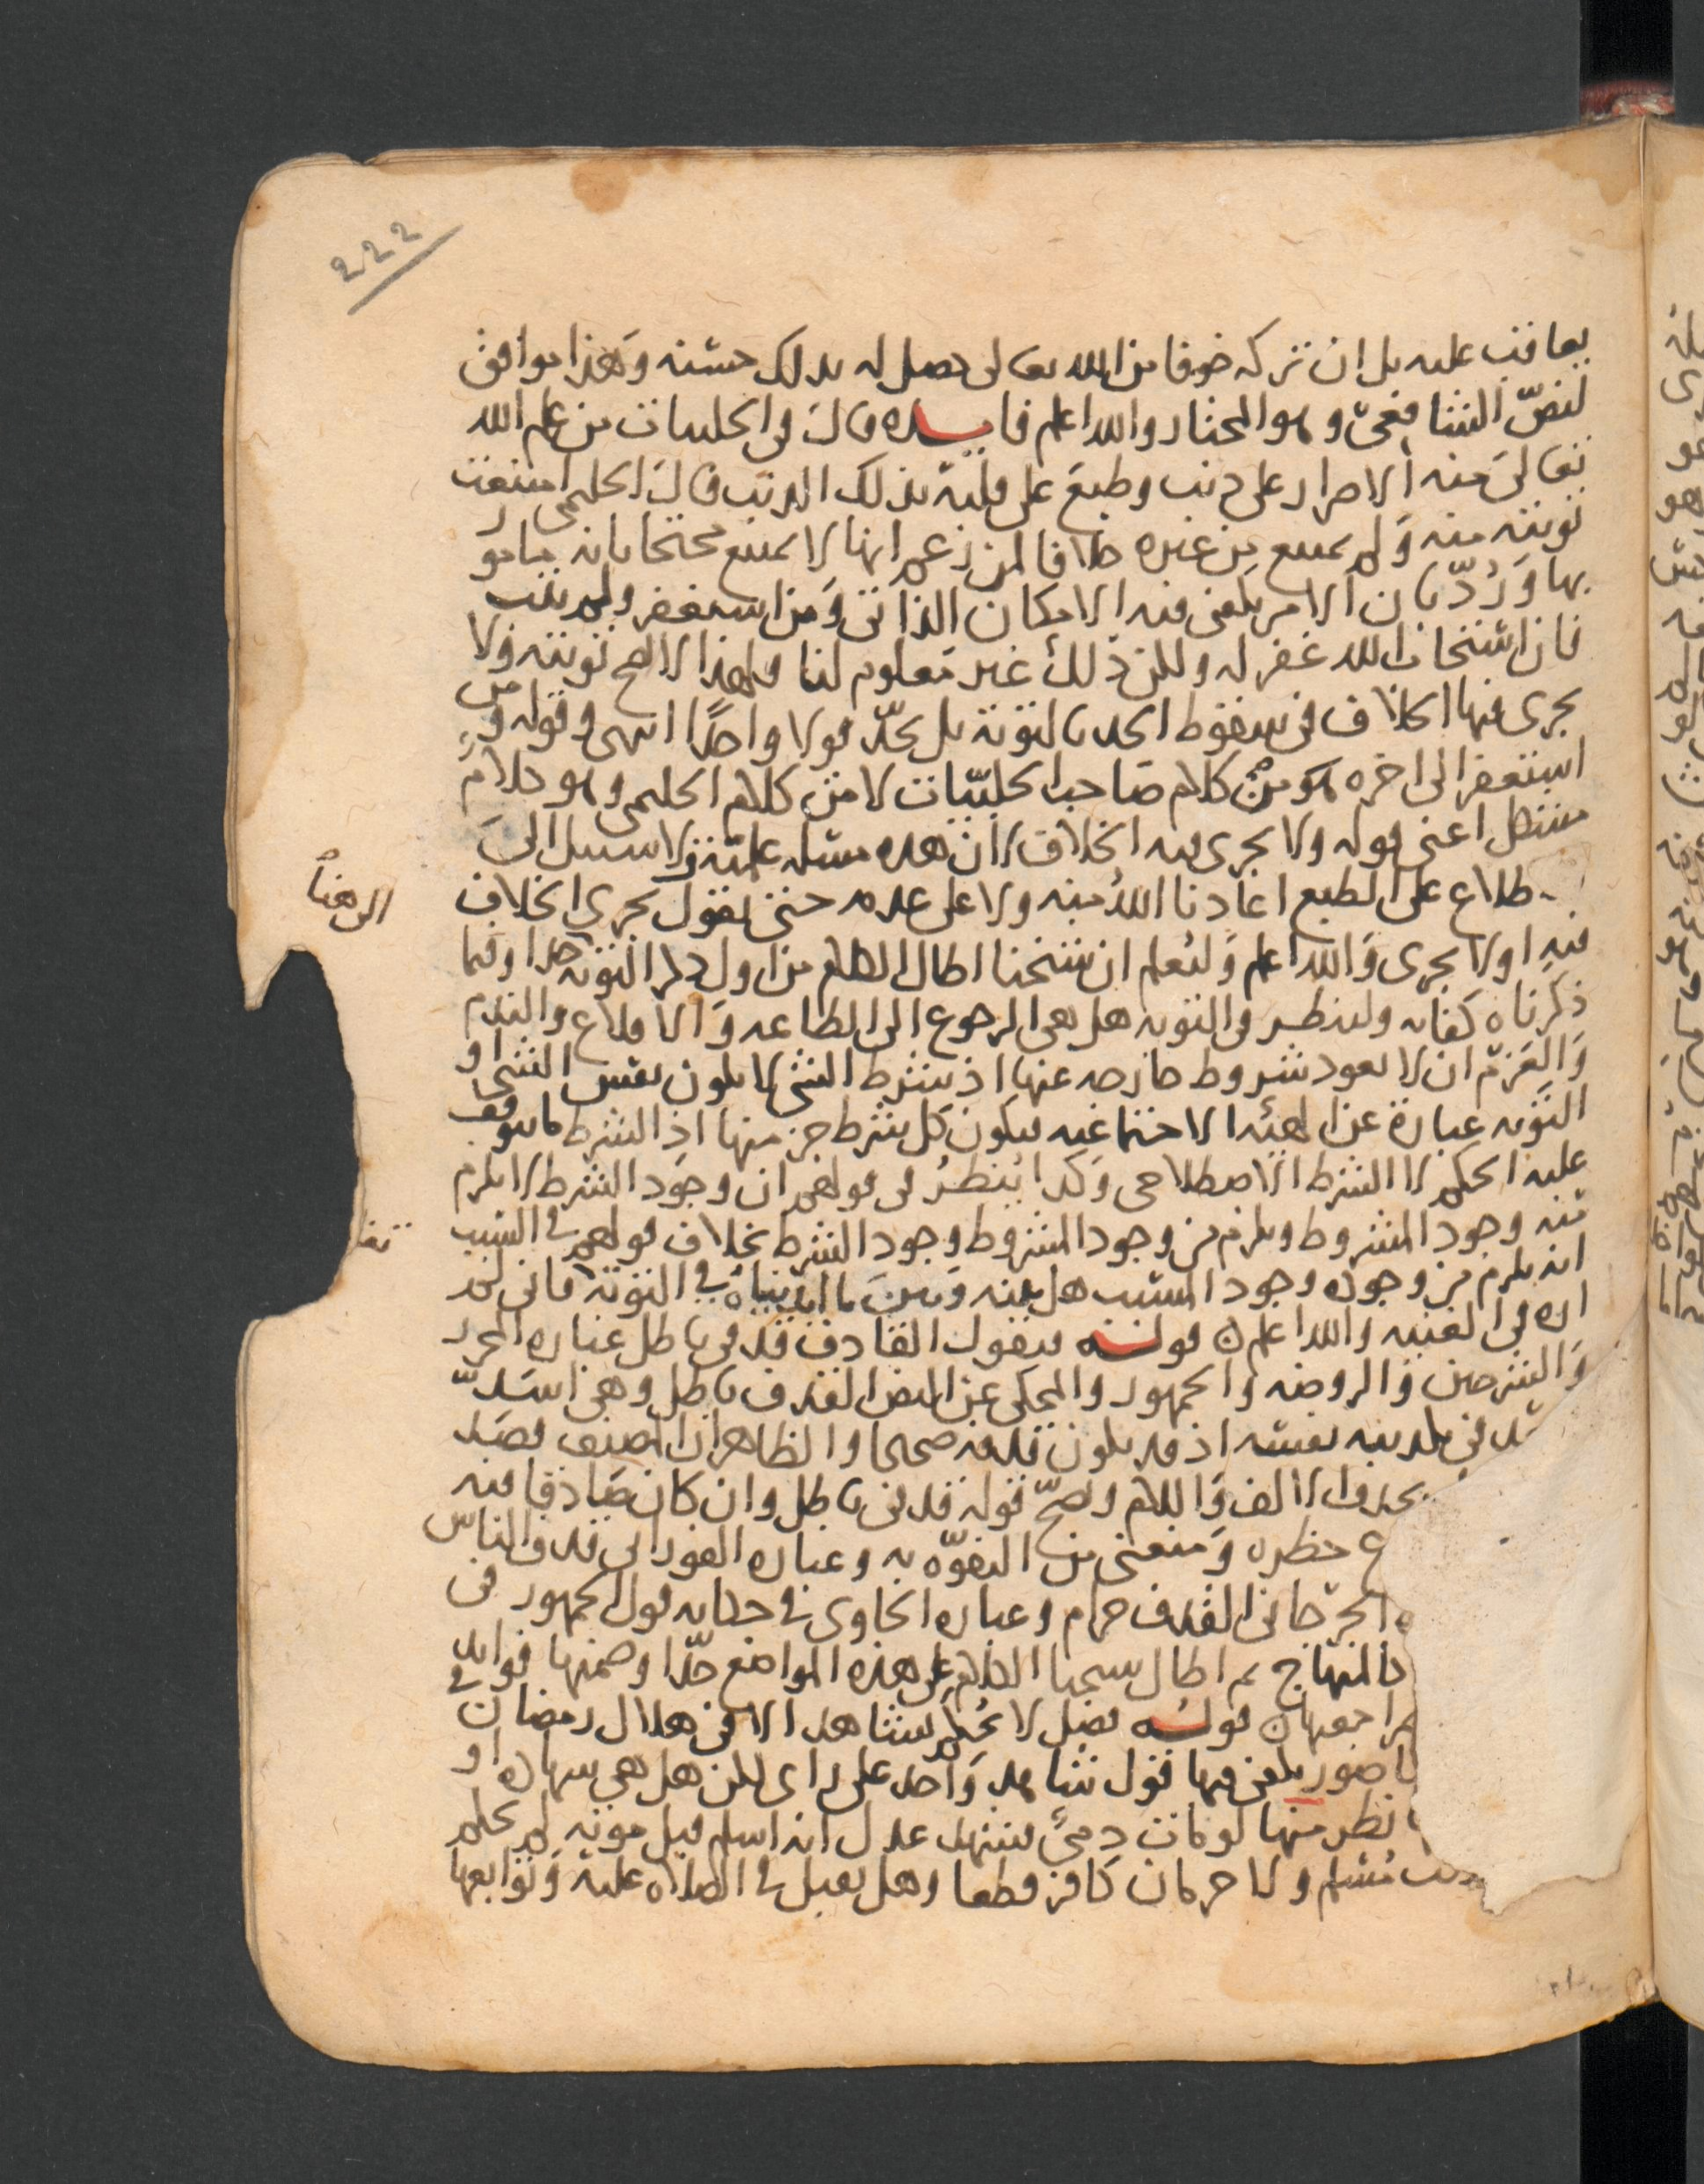 222
يعاقب عليه بل ان تركه خوفا من الله تعالى حصل له بذلك حسنة وهذا موافق
لنصّ الشافعي وهو المختار والله اعلم فايــده قال في الحلبيات من علم الله
تعالى منه الاصرار على ذنب وطبع على قلبه بذلك الذنب قال الحليمي امتنعت
توبته منه ولم يمتنع من غيره خلافا لمن زعم انها لا تمتنع محتجا بانه مامور
بها ورُدّ بان الامر يكفي فيه الامكان الذاتي ومن استغفر ولم يتب
فان استجاب الله غفر له ولكن ذلك غير معلوم لنا ولهذا لا تصح توبته ولا
يجرى فيها الخلاف في سقوط الحد بالتوبة بل يحدّ قولا واحدًا انتهى وقوله ومن
استغفر الى اخره هو من كلام صاحب الحلبيّات لا من كلام الحليمي وهو كلامٌ
مشكل اعنى قوله ولا يجرى فيه الخلاف لان هذه مسئلة علمية لا سبيل الى
طلاع على الطبع اعاذنا الله منه ولا على عدمه حتى نقول يجرى الخلاف
فيه اولا يجرى والله اعلم وليُعلم ان شيخنا اطال الكلام من اول ذكر التوبة جدا وفيما
ذكرناه كفاية ولينظر في التوبه هل هى الرجوع الى الطاعه والاقلاع والندم
والعزم ان لا يعود شروط خارجه عنها اذ شرط الشى لا يكون نفس الشى او
التوبه عبارة عن الهيئه الاجتماعيه فيكون كل شرط جز منها اذ الشرط ما يتوقف
عليه الحكم لا الشرط الاصطلاحي وكذا يُنظرُ في قولهم ان وجود الشرط لا يلزم
منه وجود المشروط ويلزم من وجود المشروط وجود الشرط بخلاف قولهم في السبب
انه يلزم من وجوده وجود المسبب هل بينه وبين ما ابديناه في التوبة فانى لم
اره في الغنيه والله اعلم ن قولــه فيقول القاذف قذفى باطل عباره المحرر
والشرحين والروضه والجمهور والمحكى عن النص القذف باطل وهي اسدّ
في تكذيبه نفسه اذ قد يكون قذفه صحيحا والظاهر ان المصنف قصد
بحذف الالف واللام وتصحّ قوله قذفى باطل وان كان صادقا فيه
حظره ومنعنى من التفوّه به وعباره العود الى قذف الناس
الجرجانى القذف حرام وعباره الحاوى في حكايه قول الجمهور في
المنهاج ثم اطال شيخنا الكلام على هذه المواضع جدّا وضمنها فوايد
مراجعها ن قولــه فصل لا يُحكم بشاهد الا في هلال رمضان في
صور يكفى فيها قول شاهد واحد على راى لكن هل هى شهاده او
نظر منها لو مات ذمىٌ فشهد عدل انه اسلم قبل موته لم يحكم
مسلم ولا حرمان كافر قطعا وهل يقبل في الصلاه عليه وتوابعها